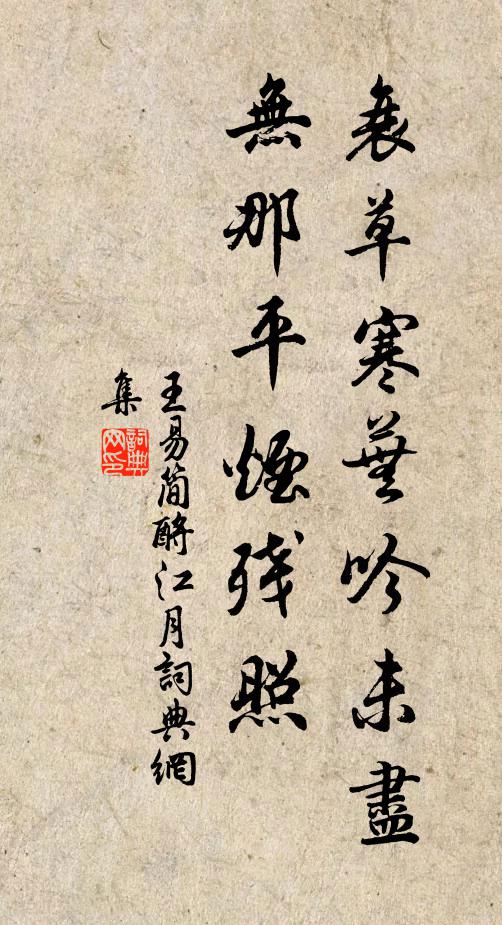 衰草寒蕪吟未盡
無那平煙残照
王易簡酹江月詞典網
集
詞典网印